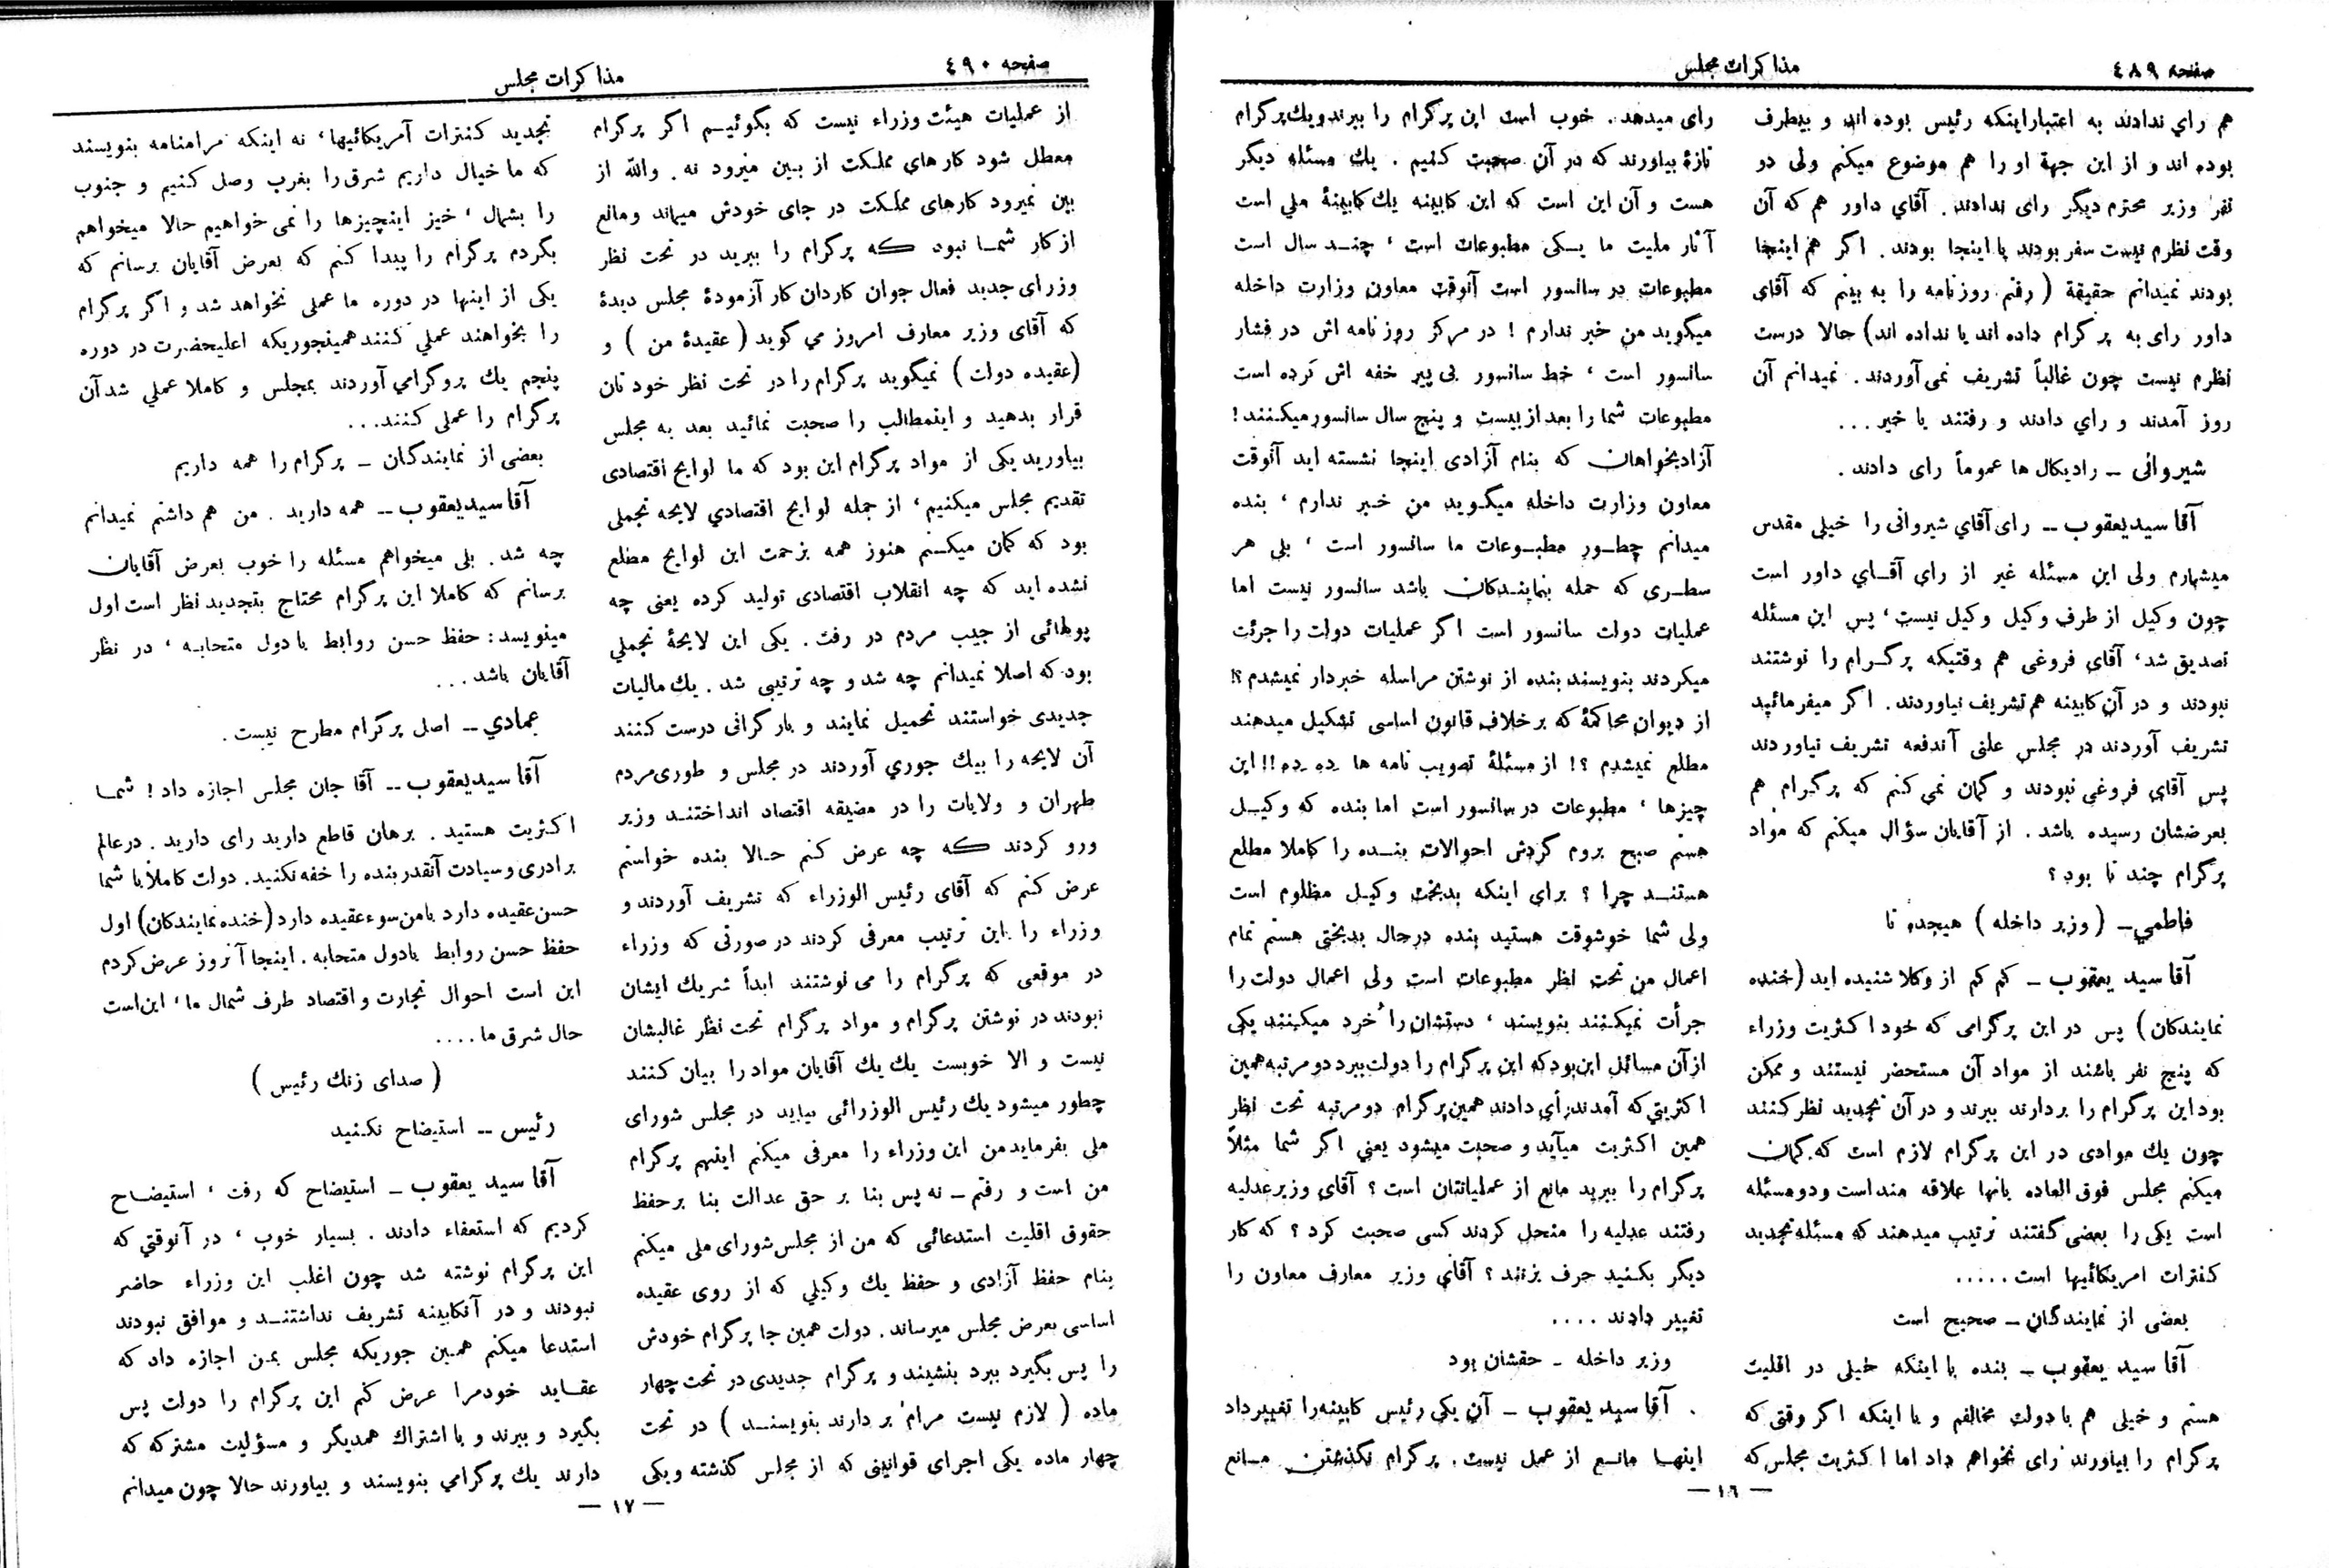 صفحه ٤٨٩
مذاكرات مجلس
هم رأي ندادند به اعتبار اینکه رئیس بوده اند و بیطرف
بوده اند و از این جهة او را هم موضوع میکنم ولی دو
نفر وزیر محترم دیگر رای ندادند. آقاي داور هم که آن
وقت نظرم نیست سفر بودند یا اینجا بودند. اگر هم اینجا
بودند نمیدانم حقیقة (رفتم روزنامه را به بینم که آقای
داور رای به پرگرام داده اند یا نداده اند) حالا درست
نظرم نیست چون غالباً تشریف نمی آوردند. نمیدانم آن
روز آمدند و رأي دادند و رفتند یا خیر...
شیروانی ــ رادیکال ها عموماً رای دادند.
آقا سید یعقوب ــ رای آقاي شیروانی را خیلی مقدس
میشمارم ولی این مسئله غیر از رای آقای داور است
چون وکیل از طرف وکیل وکیل نیست، پس این مسئله
تصدیق شد، آقای فروغی هم وقتیکه پرگرام را نوشتند
نبودند و در آن کابینه هم تشریف نیاوردند. اگر میفرمائید
تشریف آوردند در مجلس علنی آندفعه تشریف نیاوردند
پس آقاي فروغی نبودند و گمان نمی کنم که پرگرام هم
بعرضشان رسیده باشد. از آقایان سؤال میکنم که مواد
پرگرام چند تا بود؟
فاطمي ــ (وزیر داخله) هیجده تا
آقا سید یعقوب ــ کم کم از وکلا شنیده اید (خنده
نمایندکان) پس در این پرگرامی که خود اکثریت وزراء
که پنج نفر باشند از مواد آن مستحضر نیستند و ممکن
بود این پرگرام را بردارند ببرند و در آن تجدید نظر کنند
چون یك موادی در این پرگرام لازم است که گمان
میکنم مجلس فوق العاده بانها علاقه مند است و دو مسئله
است یکی را بعضی گفتند ترتیب میدهند که مسئله تجدید
کنترات امریکائیها است.....
بعضی از نمایندگان ــ صحیح است
آقا سید یعقوب ــ بنده با اینکه خیلی در اقلیت
هستم و خیلی هم با دولت مخالفم و با اینکه اگر وقتی که
پرگرام را بیاورند رای نخواهم داد اما اکثریت مجلس که
رای میدهد. خوب است این پرگرام را ببرند و یك پرگرام
تازۀ بیاورند که در آن صحبت کنیم. یك مسئله دیگر
هست و آن این است که این کابینه یك کابینۀ ملی است
آثار ملیت ما یکی مطبوعات است، چند سال است
مطبوعات در سانسور است آنوقت معاون وزارت داخله
میگوید من خبر ندارم! در مرکز روزنامه اش در فشار
سانسور است، خط سانسور بی پیر خفه اش کرده است
مطبوعات شما را بعد از بیست و پنج سال سانسور میکنند!
آزادیخواهان که بنام آزادی اینجا نشسته اید آنوقت
معاون وزارت داخله میگوید من خبر ندارم، بنده
میدانم چطور مطبوعات ما سانسور است، بلی هر
سطری که حمله بنمایندکان باشد سانسور نیست اما
عملیات دولت سانسور است اگر عملیات دولت را جرئت
میکردند بنویسند بنده از نوشتن مراسله خبردار نمیشدم؟!
از دیوان محاکمۀ که برخلاف قانون اساسی تشکیل میدهند
مطلع نمیشدم؟! از مسئلۀ تصویب نامه ها ده ده!! این
چیزها، مطبوعات در سانسور است اما بنده که وکیل
هستم صبح بروم گردش احوالات بنده را کاملا مطلع
هستند چرا؟ برای اینکه بدبخت وکیل مظلوم است
ولی شما خوشوقت هستید بنده در حال بدبختی هستم تمام
اعمال من تحت نظر مطبوعات است ولی اعمال دولت را
جرأت نمیکنند بنویسند، دستشان را خرد میکنند یکی
از آن مسائل این بود که این پرگرام را دولت ببرد دو مرتبه همین
اکثریتي که آمدند رأی دادند همین پرگرام دو مرتبه تحت نظر
همین اکثریت میآید و صحبت میشود یعني اگر شما مثلاً
پرگرام را ببرید مانع از عملیاتتان است؟ آقای وزیر عدلیه
رفتند عدلیه را منحل کردند کسی صحبت کرد؟ که کار
دیگر بکنید حرف بزنند؟ آقاي وزیر معارف معاون را
تغییر دادند....
وزیر داخله ــ حقشان بود
آقا سید یعقوب ــ آن یکی رئیس کابینه را تغییر داد
اینها مانع از عمل نیست. پرگرام نگذشتن مانع
— ١٦ —
صفحه ٤٩٠
مذاكرات مجلس
از عملیات هیئت وزراء نیست که بگوئیم اگر پرگرام
معطل شود کارهای مملکت از بین میرود نه. والله از
بین نمیرود کارهای مملکت در جای خودش میماند و مانع
از کار شما نبود که پرگرام را ببرید در تحت نظر
وزرای جدید فعال جوان کاردان کار آزمودۀ مجلس دیدۀ
که آقای وزیر معارف امروز می گوید (عقیدۀ من) و
(عقیده دولت) نمیگوید پرگرام را در تحت نظر خودتان
قرار بدهید و اینمطالب را صحبت نمائید بعد به مجلس
بیاورید یکی از مواد پرگرام این بود که ما لوایح اقتصادی
تقدیم مجلس میکنیم، از جمله لوایح اقتصادي لایحه تجملی
بود که گمان میکنم هنوز همه بزحمت این لوایح مطلع
نشده اید که چه انقلاب اقتصادی تولید کرده یعنی چه
پولهائی از جیب مردم در رفت. یکی این لایحۀ تجملي
بود که اصلا نمیدانم چه شد و چه ترتیبی شد. یك مالیات
جدیدی خواستند تحمیل نمایند و بار گرانی درست کنند
آن لایحه را بیك جوري آوردند در مجلس و طوری مردم
طهران و ولایات را در مضیقه اقتصاد انداختند وزیر
ورو کردند که چه عرض کنم حالا بنده خواستم
عرض کنم که آقای رئیس الوزراء که تشریف آوردند و
وزراء را باین ترتیب معرفی کردند در صورتی که وزراء
در موقعی که پرگرام را می نوشتند ابداً شریك ایشان
نبودند در نوشتن پرگرام و مواد پرگرام تحت نظر غالبشان
نیست و الا خوبست یك یك آقایان مواد را بیان کنند
چطور میشود یك رئیس الوزرائی بیاید در مجلس شورای
ملی بفرماید من این وزراء را معرفی میکنم اینهم پرگرام
من است و رفتم ــ نه پس بنا بر حق عدالت بنا بر حفظ
حقوق اقلیت استدعائی که من از مجلس شورای ملی میکنم
بنام حفظ آزادی و حفظ یك وکیلي که از روی عقیده
اساسی بعرض مجلس میرساند. دولت همین جا پرگرام خودش
را پس بگیرد ببرد بنشیند و پرگرام جدیدی در تحت چهار
ماده (لازم نیست مرام بر دارند بنویسند) در تحت
چهار ماده یکی اجرای قوانینی که از مجلس گذشته و یکی
تجدید کنترات آمریکائیها، نه اینکه مرامنامه بنویسند
که ما خیال داریم شرق را بغرب وصل کنیم و جنوب
را بشمال، خیر اینچیزها را نمی خواهیم حالا میخواهم
بگردم پرگرام را پیدا کنم که بعرض آقایان برسانم که
یکی از اینها در دوره ما عملی نخواهد شد و اگر پرگرام
را بخواهند عملي کنند همینجوریکه اعلیحضرت در دوره
پنجم یك پروگرامي آوردند بمجلس و کاملا عملي شد آن
پرگرام را عملی کنند...
بعضی از نمایندگان ــ پرگرام را همه داریم
آقا سید یعقوب ــ همه دارید. من هم داشتم نمیدانم
چه شد. بلی میخواهم مسئله را خوب بعرض آقایان
برسانم که کاملا این پرگرام محتاج بتجدید نظر است اول
مینویسد: حفظ حسن روابط با دول متحابه، در نظر
آقایان باشد...
عمادي ــ اصل پرگرام مطرح نیست.
آقا سید یعقوب ــ آقا جان مجلس اجازه داد! شما
اکثریت هستید. برهان قاطع دارید رای دارید. در عالم
برادری و سیادت آنقدر بنده را خفه نکنید. دولت کاملاً با شما
حسن عقیده دارد با من سوء عقیده دارد (خنده نمایندکان) اول
حفظ حسن روابط با دول متحابه. اینجا آنروز عرض کردم
این است احوال تجارت و اقتصاد طرف شمال ما، این است
حال شرق ما....
(صدای زنك رئیس)
رئیس ــ استیضاح نکنید
آقا سید یعقوب ــ استیضاح که رفت، استیضاح
کردیم که استعفاء دادند. بسیار خوب، در آنوقتي که
این پرگرام نوشته شد چون اغلب این وزراء حاضر
نبودند و در آنکابینه تشریف نداشتند و موافق نبودند
استدعا میکنم همین جوریکه مجلس بمن اجازه داد که
عقاید خودمرا عرض کنم این پرگرام را دولت پس
بگیرد و ببرند و با اشتراك همدیگر و مسؤلیت مشترکه که
دارند یك پرگرامي بنویسند و بیاورند حالا چون میدانم
— ١٧ —